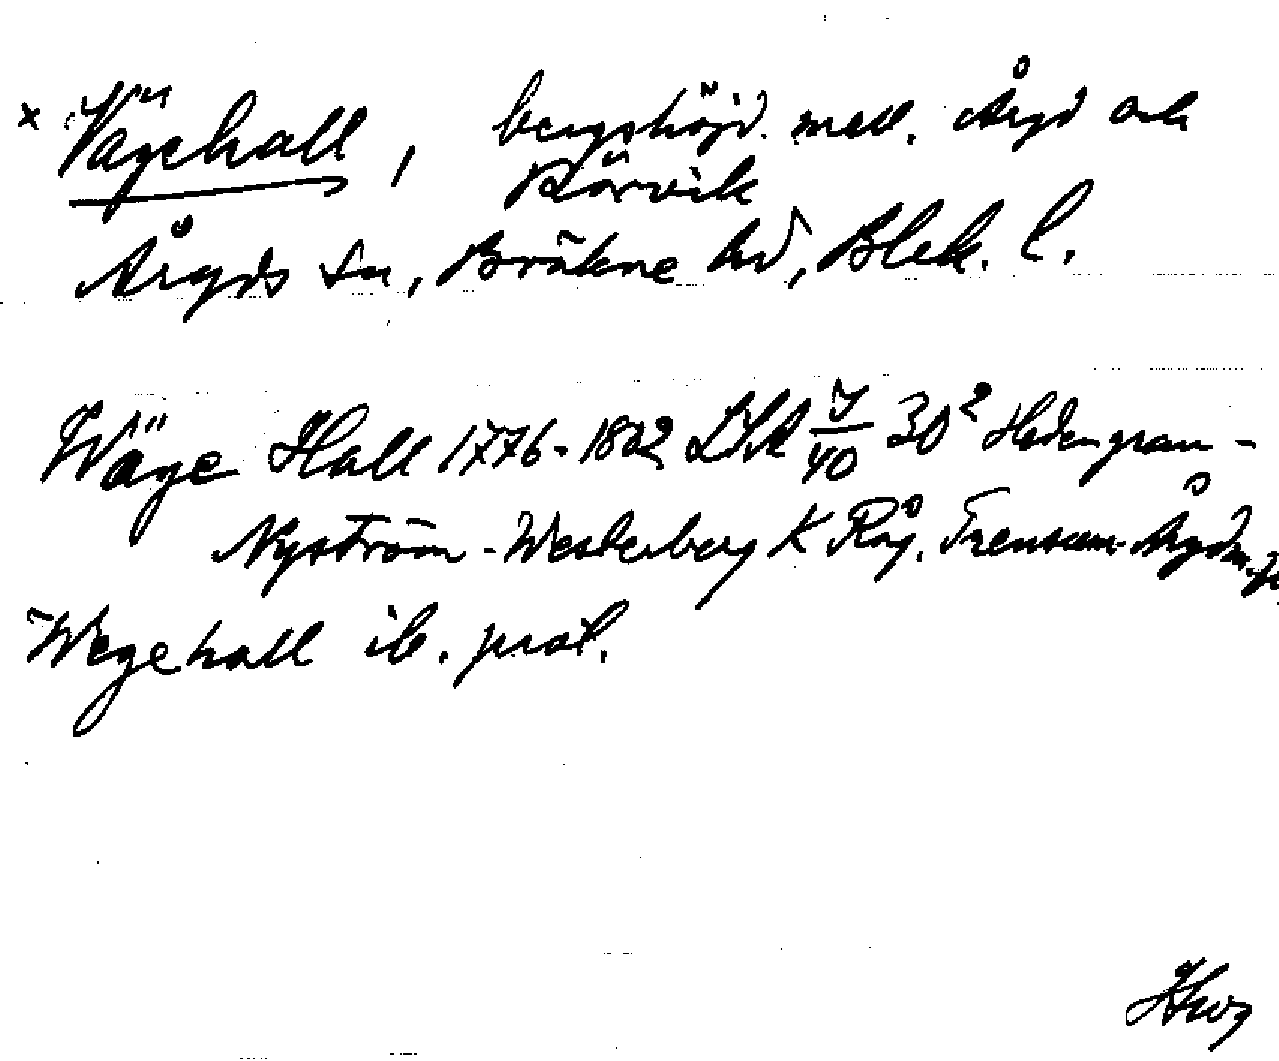 x Vägehall, bergshöjd. mell. Åryd och
Rörvik
Åryds sn, Bräkne hd, Blek. l.
Wäge Hall 1776-1802 LSA 30² Hedengran-
Nyström-Westerberg K Råg. Trensum-Åryd
Wegehall ib. prot.